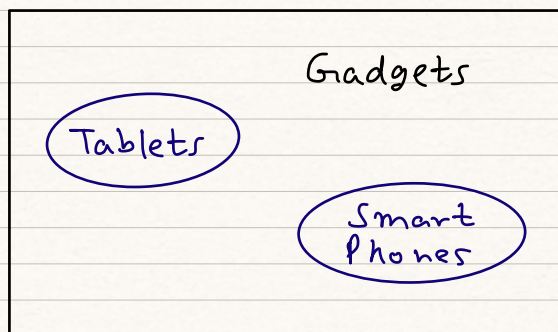 Gadgets
Tablets
Smart
Phones